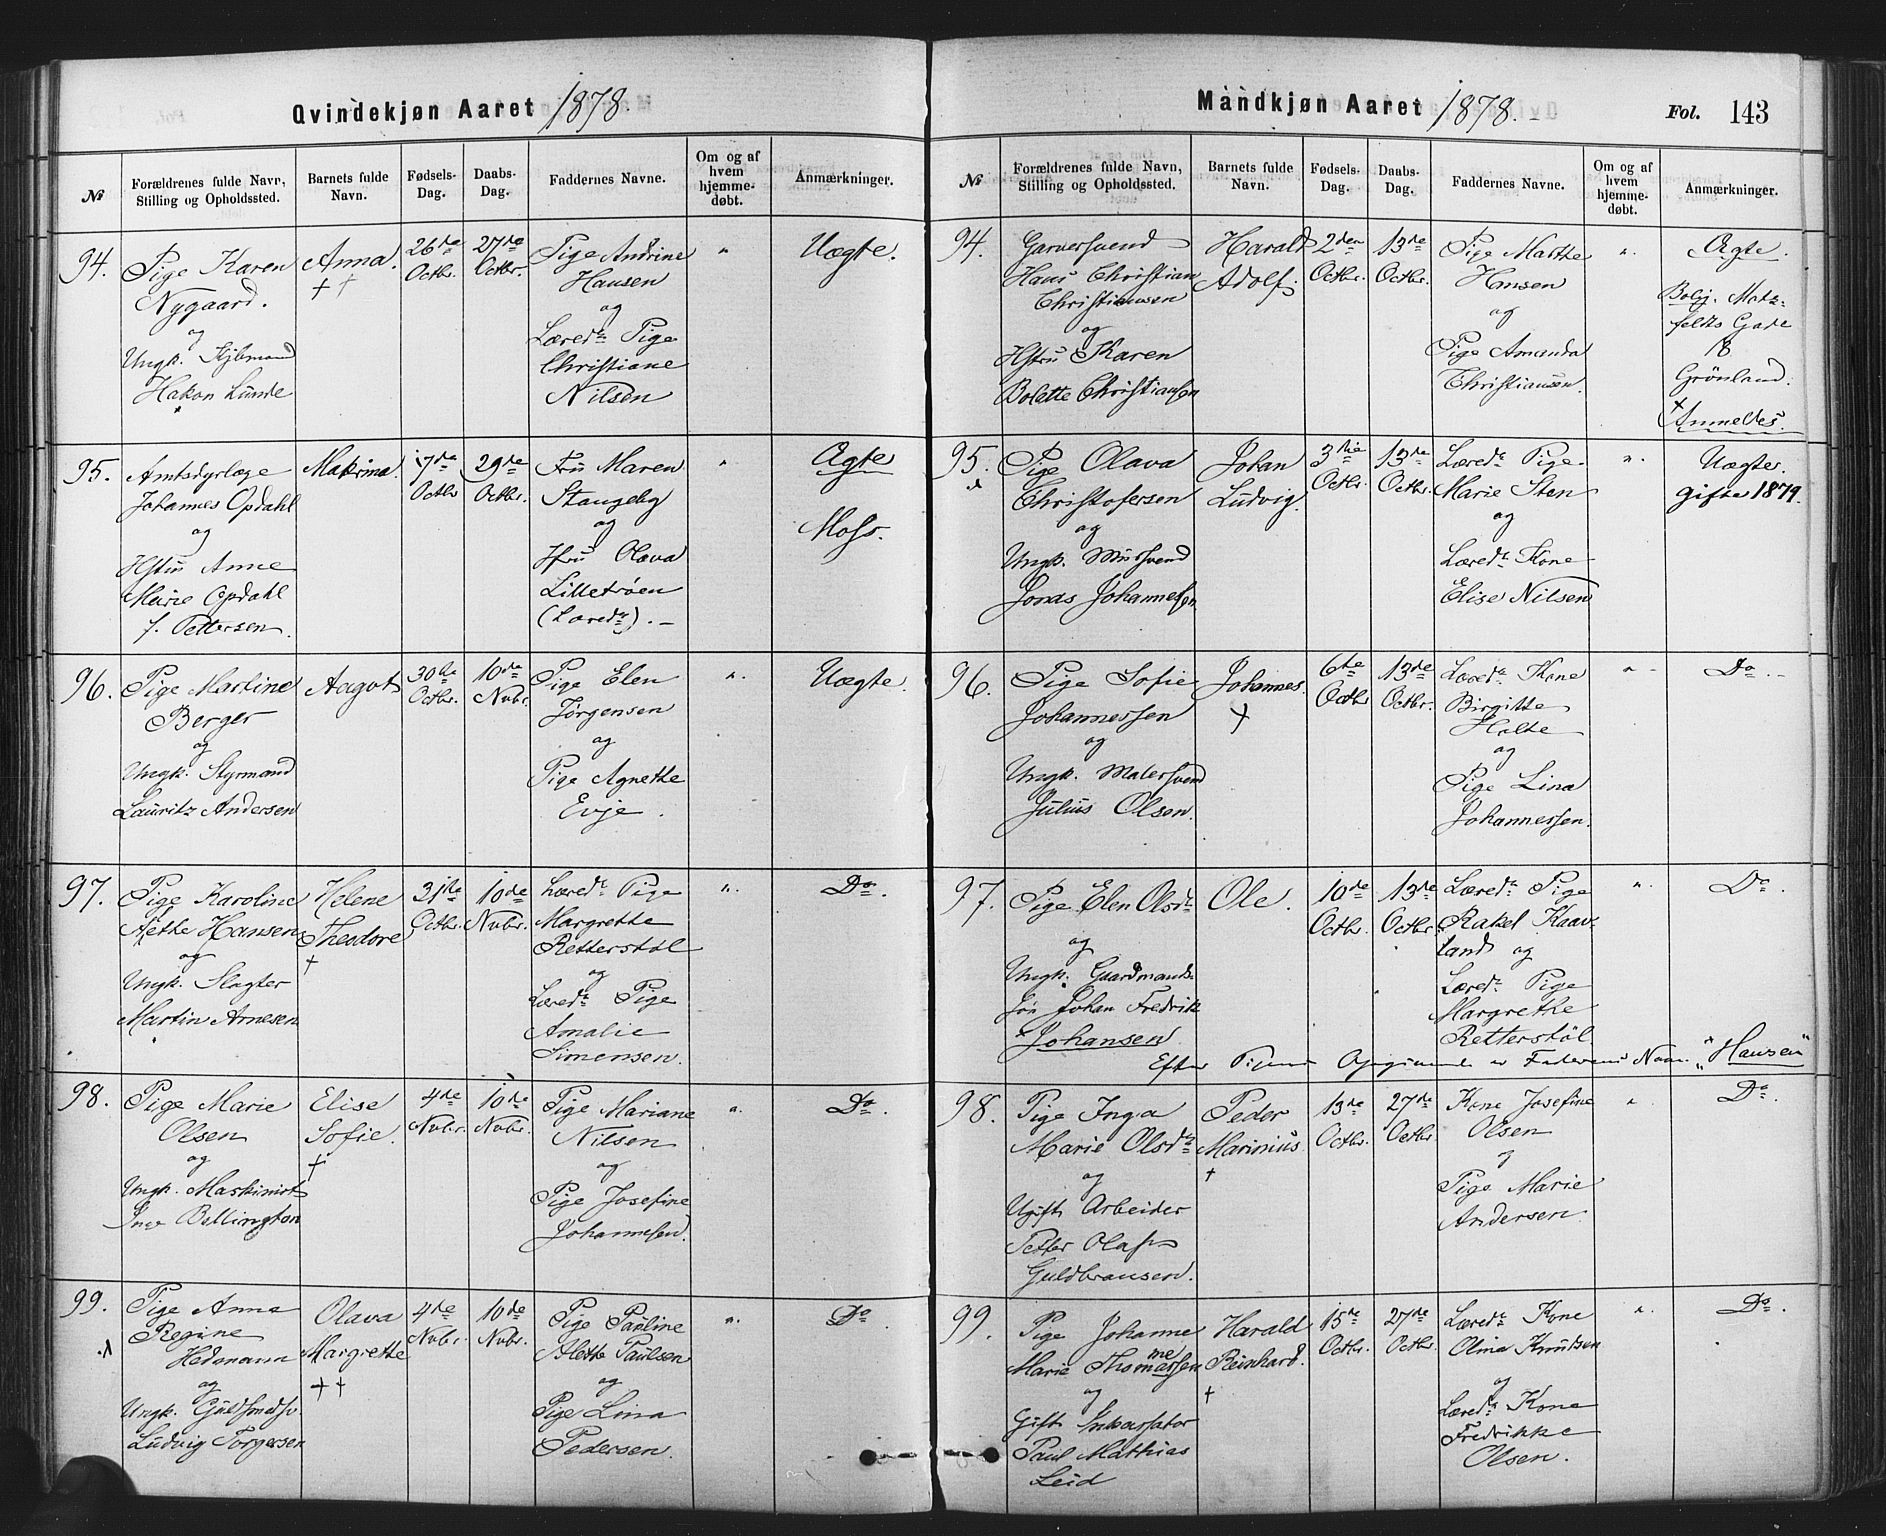 Qvindekjøn Aaret 1878.
№
Forældrenes fulde Navn, Stilling og Opholdssted.
Barnets fulde Navn.
Fødsels-Dag.
Daabs-Dag.
Faddernes Navne.
Om og af hvem hjemme-døbt.
Anmærkninger.
94.
Pige Karen
Nygaard.
og
Ungk.
Hakon Lunde
Anna.
† †
26de
Octbr.
27de
Octbr.
Pige Andrine
Hansen
og
Læred. Pige
Christiane
Nilsen
"
Uægte.
95.
Amtsdyrlæge
Johannes Opdahl
og
Hstru Anne
Marie Opdahl
f. Pettersen.
Makrina.
17de
Octbr
29de
Octbr.
Fru Maren
Stangeby
og
Hfru Olava
Lilletröen
(Læred.). —
"
Ægte
Moss.
96.
Pige Martine
Berger
og
Ungk. Styrmand
Lauritz Andersen
Aagot
30te
Octbr.
10de
Nvbr.
Pige Elen
Jørgensen
og
Pige Agnethe
Evje.
"
Uægte.
97.
Pige Karoline
Aette Hansen
og
Ungk. Slagter
Martin Arnesen
Helene
Theodore
†
31te
Octbr.
10de
Nvbr.
Læred. Pige
Margrethe
Retterstøl
og
Læred. Pige
Amalie
Simensen.
"
Do.
98.
Pige Marie
Olsen
og
Ungk. Maskinist
Bellington
Elise
Sofie.
†
4de
Nvbr.
10de
Nvbr.
Pige Mariane
Nilsen
og
Pige Josefine
Johannesen.
"
Do.
99.
Pige Anna
Regine
Hedemann
og
Ungk. Guldsmedsv.
Ludvig Torgersen
Olava
Margrethe
† †
4de
Nvbr.
10de
Nvbr.
Pige Pauline
Alette Paulsen
og
Pige Lina
Pedersen.
"
Do.
Mandkjøn Aaret 1878.
Fol. 143
№
Forældrenes fulde Navn, Stilling og Opholdssted.
Barnets fulde Navn.
Fødsels-Dag.
Daabs-Dag.
Faddernes Navne.
Om og af hvem hjemme-døbt.
Anmærkninger.
94.
Garversvend
Hans Christian
Christiansen
og
Hstru Karen
Bolette Christiansen
Harald
Adolf.
2den
Octbr.
13de
Octbr.
Pige Marthe
Hansen
og
Pige Amanda
Christiansen.
"
Ægte.
Bolig. Motz-
feldts Gade
18
Grönland.
Anmeldes.
95.
Pige Olava
Christofersen
og
Ungk. Mursvend
Jonas Johannesen
Johan
Ludvig.
3die
Octbr.
13de
Octbr.
Læred. Pige
Marie Sten
og
Læred. Kone
Elise Nilsen
"
Uægte.
Gifte 1879.
96.
Pige Sofie
Johannessen
og
Ungk. Malersvend
Julius Olsen.
Johannes.
†
6te
Octbr
13de
Octbr.
Læred. Kone
Birgitte
Holte
og
Pige Lina
Johannessen.
"
Do.
97.
Pige Elen Olsdr.
og
Ungk. Gaardmands-
søn Johan Fredrik
Johansen.
Ole.
10de
Octbr.
13de
Octbr.
Læred. Pige
Rakel Kaav-
land og
Læred. Pige
Margrethe
Retterstøl
"
Do.
Efter Pigens Opgivende er Faderens Navn "Hansen"
98.
Pige Inga
Marie Olsdr.
og
Ugift Arbeider
Petter Olaf
Guldbransen.
Peder
Marinius.
†
13de
Octbr.
27de
Octbr
Kone Josefine
Olsen
og
Pige Marie
Andersen.
"
Do.
99.
Pige Johanne
Marie Thomassen
me
og
Gift Inkassator
Paul Mathias
Leid
Harald
Reinhard.
†
15de
Octbr.
27de
Octbr.
Læred. Kone
Olina Knutsen
og
Læred. Kone
Fredrikke
Olsen.
"
Do.